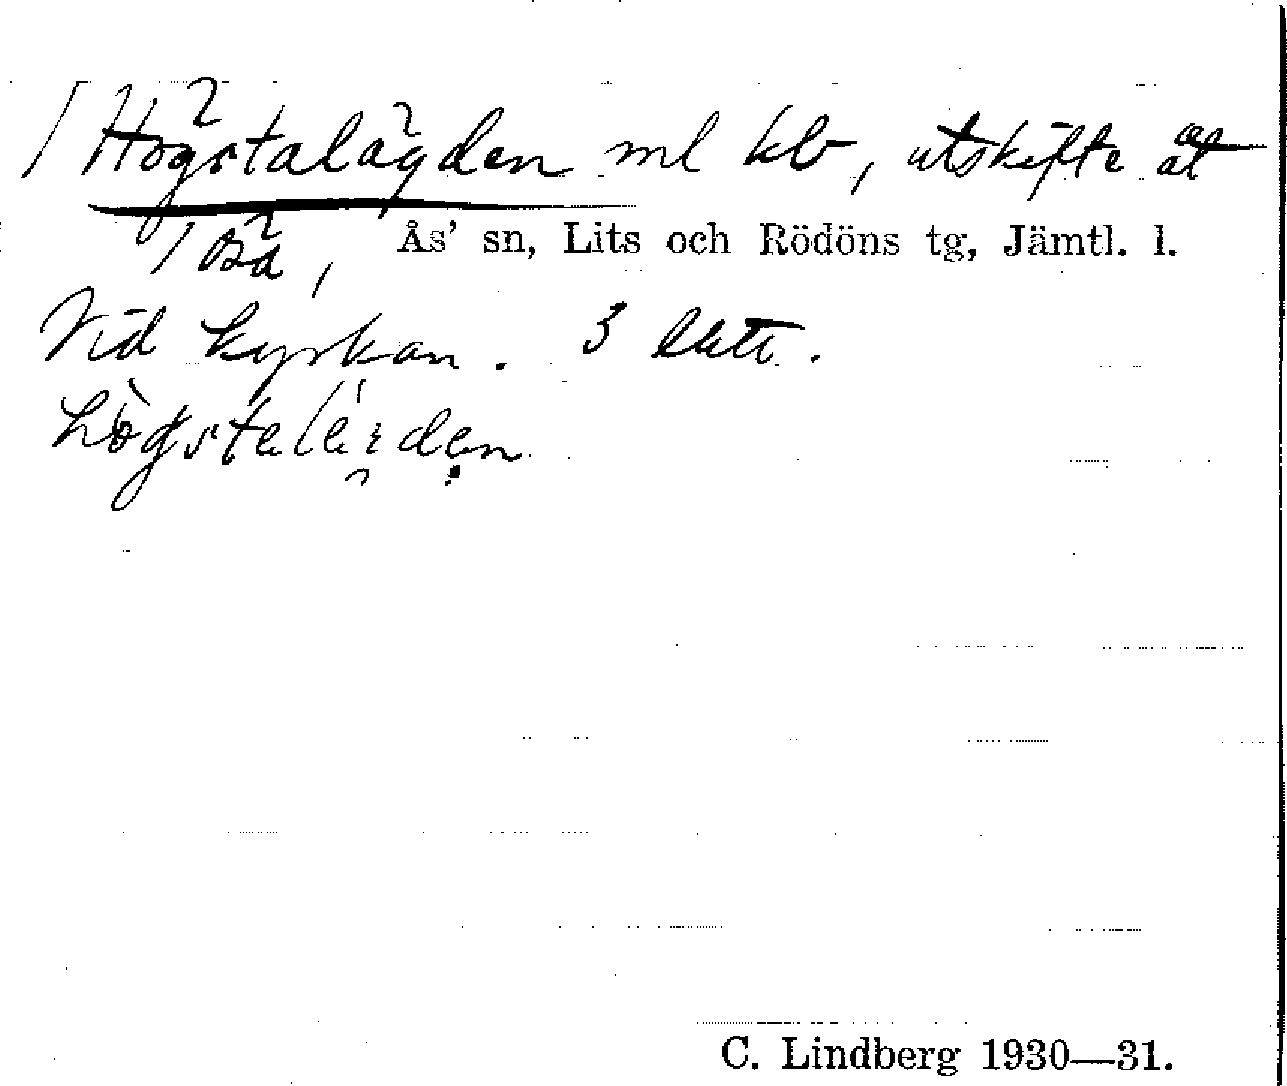 Högstalägden ml kb, utskifte åt
Öså, Ås' sn, Lits och Rödöns tg, Jämtl. l.
Vid kyrkan. 3
C. Lindberg 1930—31.